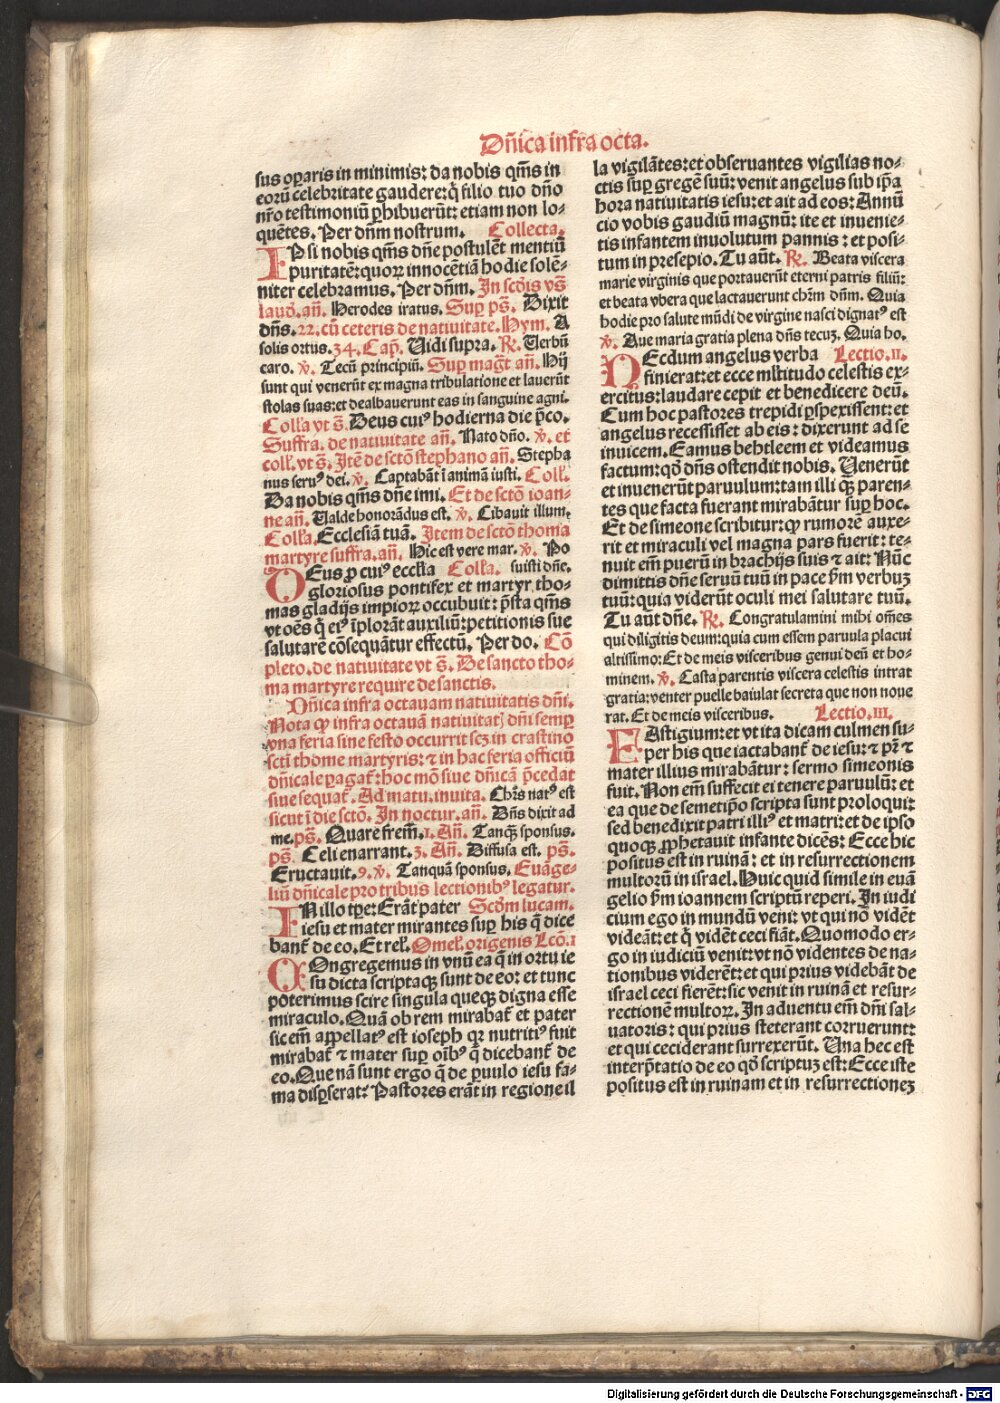 Dñica infra octa.
sus oꝑaris in minimis: da nobis q̄ms in
eorū celebritate gaudere: q̄ filio tuo dño
nr̄o testimoniū ꝑhibuerūt: etiam non lo-
quētes. Per dñm nostrum. Collecta.
IPsi nobis q̄ms dñe postulēt mentiū
puritatē: quoꝝ innocētiā hodie solē-
niter celebramus. Per dñm. In scd̄is vs̄
laud̄. añ. Herodes iratus. Suꝑ ps̄. Dixit
dñs. 22. cū ceteris de natiuitate. Hym. A
solis ortus. 34. Cap̄. Uidi supra. ℟. Uerbū
caro. ℣. Tecū principiū. Suꝑ maḡt añ. Hij
sunt qui venerūt ex magna tribulatione et lauerūt
stolas suas: et dealbauerunt eas in sanguine agni.
Coll̄a vt s̄. Deus cuiꝰ hodierna die p̄co.
Suffra. de natiuitate añ. Nato dño. ℣. et
coll̄. vt s̄. Itē de sctō stephano añ. Stepha
nus seruꝰ dei. ℣. Caꝑtabāt ī animā iusti. Coll̄.
Da nobis q̄ms dñe imi. Et de sctō ioan-
ne añ. Ualde honorādus est. ℣. Cibauit illum.
Coll̄a. Ecclesiā tuā. Item de sctō thoma
martyre suffra. añ. Hic est vere mar. ℣. Po
DEus ꝓ cuiꝰ eccesta Coll̄a. suisti dñe.
gloriosus pontifex et martyr tho-
mas gladijs impioꝝ occubuit: p̄sta q̄ms
vt oēs q̄ eiꝰ īplorāt auxiliū: petitionis sue
salutarē cōsequātur effectū. Per do. Cō
pleto. de natiuitate vt s̄. De sancto tho-
ma martyre require de sanctis.
Dñica infra octauam natiuitatis dñi.
Nota ꝙ infra octauā natiuitatꝭ dñi semꝑ
vna feria sine festo occurrit scꝫ in crastino
scti thome martyris: ⁊ in hac feria officiū
dñicale ꝑagat̄: hoc mō siue dñicā p̄cedat
siue sequat̄. Ad matu. inuita. Chr̄s natꝰ est
sicut ī die sctō. In noctur. añ. Dñs dixit ad
me. ps̄. Quare frem̄. 1. Añ. Tanqꝫ sponsus.
ps̄. Celi enarrant. 3. Añ. Diffusa est. ps̄.
Eructauit. 9. ℣. Tanquā sponsus. Euāge-
liū dñicale pro tribus lectionibꝰ legatur.
IN illo tꝑe: Erāt pater Scd̄m lucam.
iesu et mater mirantes suꝑ his q̄ dice
bant̄ de eo. Et rel̄. Omel̄. origenis Lcō. 1
COngregemus in vnū ea q̄ in ortu ie
su dicta scriptaqꝫ sunt de eo: et tunc
poterimus scire singula queqꝫ digna esse
miraculo. Quā ob rem mirabat̄ et pater
sic em̄ appellatꝰ est ioseph qꝛ nutritiꝰ fuit
mirabat̄ ⁊ mater suꝑ oībꝰ q̄ dicebant̄ de
eo. Que nā sunt ergo q̄ de ꝑuulo iesu fa-
ma disꝑserat: Pastores erāt in regione il
la vigilātes: et obseruantes vigilias no-
ctis suꝑ gregē suū: venit angelus sub ip̄a
hora natiuitatis iesu: et ait ad eos: Annū
cio vobis gaudiū magnū: ite et inuenie-
tis infantem inuolutum pannis: et posi-
tum in presepio. Tu aūt. ℟. Beata viscera
marie virginis que portauerūt eterni patris filiū:
et beata vbera que lactauerunt chr̄m dñm. Quia
hodie pro salute mūdi de virgine nasci dignatꝰ est
℣. Aue maria gratia plena dñs tecuꝫ. Quia ho.
NEcdum angelus verba Lectio. II.
finierat: et ecce ml̄titudo celestis ex-
ercitus: laudare cepit et benedicere deū.
Cum hoc pastores trepidi ꝑspexissent: et
angelus recessisset ab eis: dixerunt ad se
inuicem. Eamus bethleem et videamus
factum: qd̄ dñs ostendit nobis. Uenerūt
et inuenerūt paruulum: tam illi qꝫ paren-
tes que facta fuerant mirabātur suꝑ hoc.
Et de simeone scribitur: ꝙ rumorē auxe-
rit et miraculi vel magna pars fuerit: te-
nuit em̄ puerū in brachijs suis ⁊ ait: Nūc
dimittis dñe seruū tuū in pace p̄m verbuꝫ
tuū: quia viderūt oculi mei salutare tuū.
Tu aūt dñe. ℟. Congratulamini mihi om̄es
qui diligitis deum: quia cum essem paruula placui
altissimo: Et de meis visceribus genui deū et ho-
minem. ℣. Casta parentis viscera celestis intrat
gratia: venter puelle baiulat secreta que non noue
rat. Et de meis visceribus. Lectio. III.
FAstigium: et vt ita dicam culmen su-
per his que iactabant̄ de iesu: ⁊ pr̄ ⁊
mater illius mirabātur: sermo simeonis
fuit. Non em̄ suffecit ei tenere paruulū: et
ea que de semetip̄o scripta sunt proloqui:
sed benedixit patri illiꝰ et matri: et de ipso
quoqꝫ ꝓphetauit infante dicēs: Ecce hic
positus est in ruinā: et in resurrectionem
multorū in israel. Huic quid simile in euā
gelio p̄m ioannem scriptū reperi. In iudi
cium ego in mundū veni: vt qui nō vidēt
videāt: et q̄ vidēt ceci fiāt. Quomodo er-
go in iudiciū venit: vt nō videntes de na-
tionibus viderēt: et qui prius videbāt de
israel ceci fierēt: sic venit in ruinā et resur-
rectionē multoꝝ. In aduentu em̄ dñi sal-
uatoris: qui prius steterant corruerunt:
et qui ceciderant surrexerūt. Una hec est
interp̄tatio de eo qd̄ scriptuꝫ est: Ecce iste
positus est in ruinam et in resurrectioneꝫ
Digitalisierung gefördert durch die Deutsche Forschungsgemeinschaft - DFG